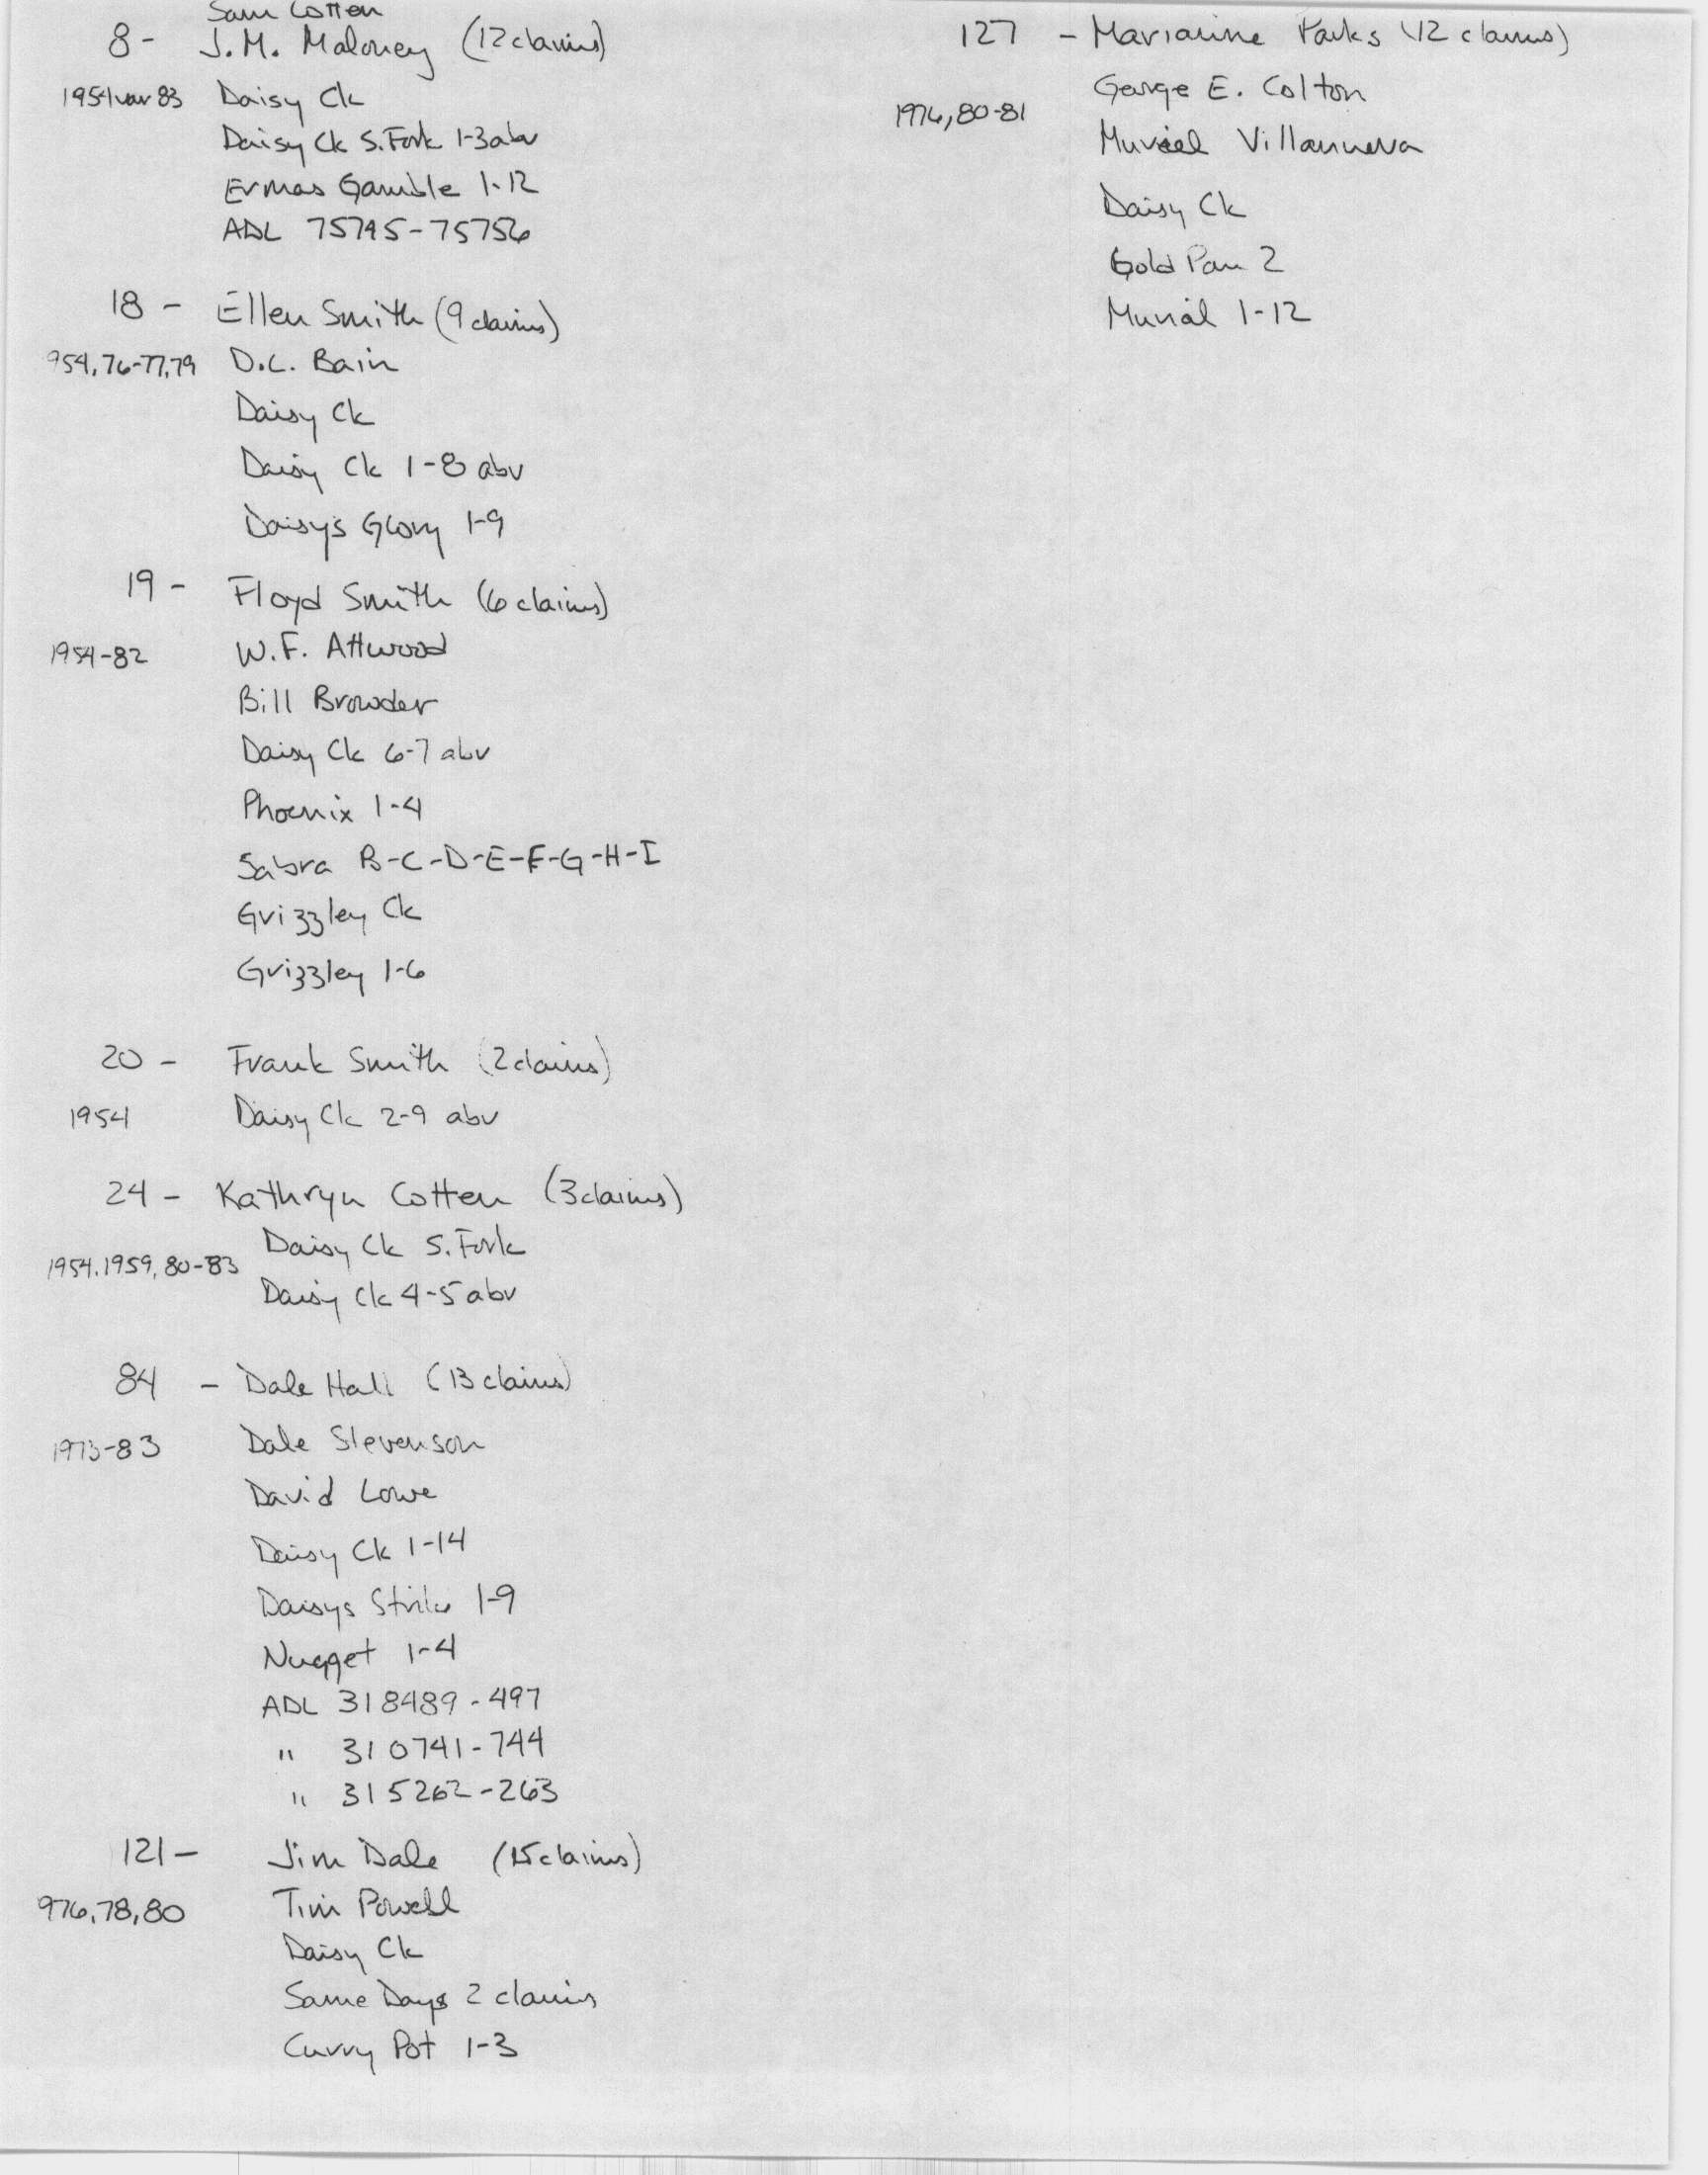 Sam Cotten
8 - J.M. Maloney (12 claims)
1954 var 83 Daisy Ck
Daisy Ck S. Fork 1-3 abv
Ermas Gamble 1-12
ADL 75745-75756
18 - Ellen Smith (9 claims)
954, 76-77, 79 D.C. Bain
Daisy Ck
Daisy Ck 1-8 abv
Daisy's Glory 1-9
19 - Floyd Smith (6 claims)
1954-82 W.F. Attwood
Bill Browder
Daisy Ck 6-7 abv
Phoenix 1-4
Sabra B-C-D-E-F-G-H-I
Grizzley Ck
Grizzley 1-6
20 - Frank Smith (2 claims)
1954 Daisy Ck 2-9 abv
24 - Kathryn Cotten (3 claims)
Daisy Ck S. Fork
1954, 1959, 80-83
Daisy Ck 4-5 abv
84 - Dale Hall (13 claims)
1973-83 Dale Stevenson
David Lowe
Daisy Ck 1-14
Daisys Strike 1-9
Nugget 1-4
ADL 318489-497
" 310741-744
" 315262-263
121 - Jim Dale (15 claims)
976, 78, 80 Tim Powell
Daisy Ck
Same Days 2 claims
Curry Pot 1-3
127 - Marianne Parks (12 claims)
George E. Colton
1976, 80-81
Muriel Villanueva
Daisy Ck
Gold Pan 2
Murial 1-12